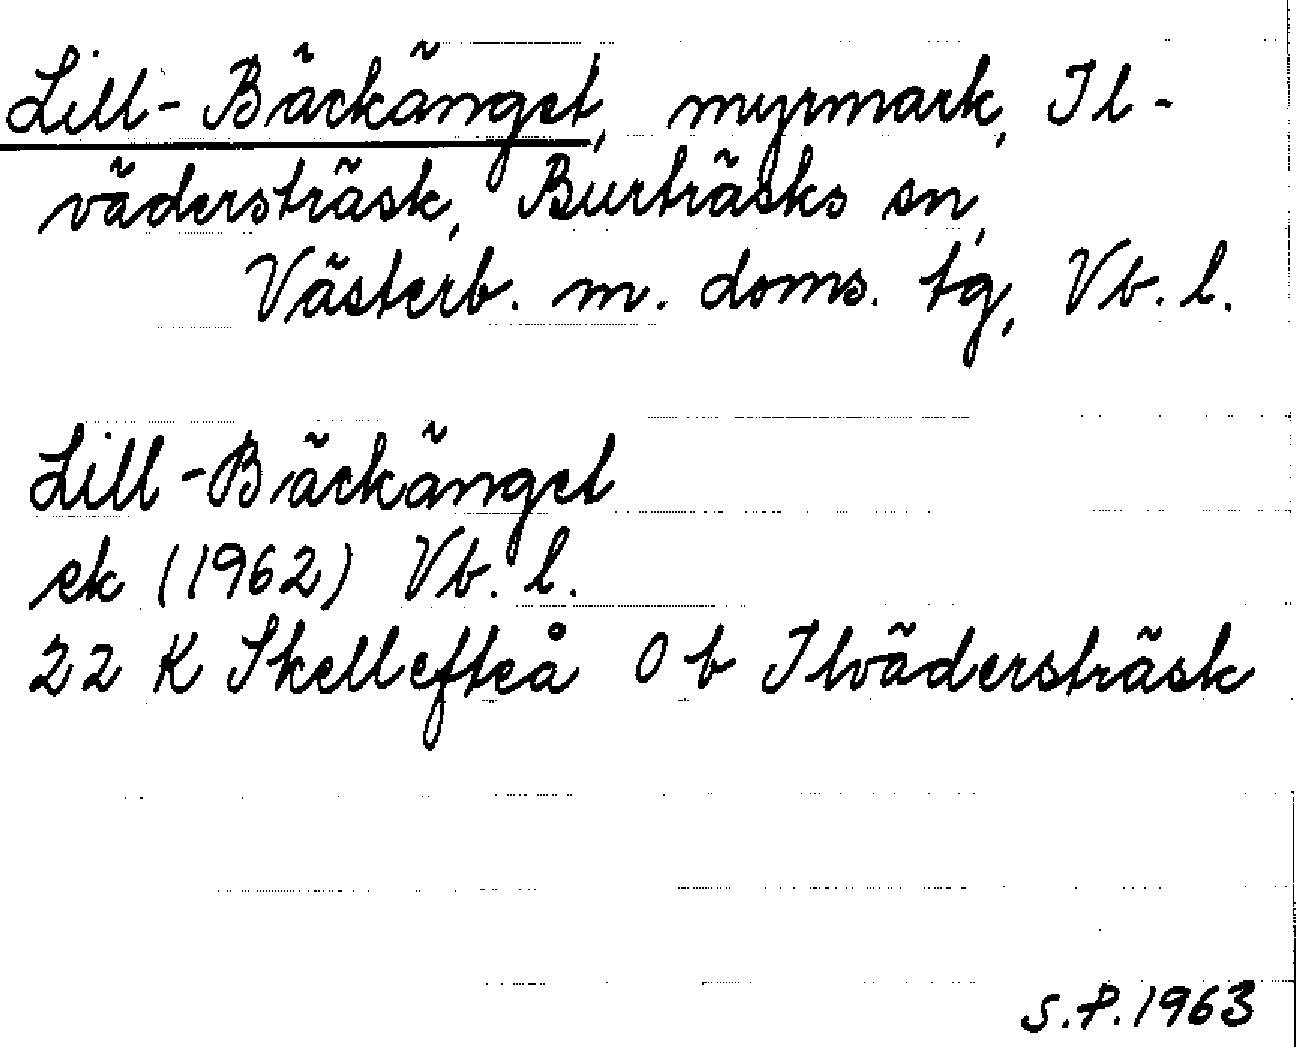 Lill-Bäckänget, myrmark, Il-
vädersträsk, Burträsks sn,
Västerb. m. doms. tg, Vb. l.
Lill-Bäckänget
ek (1962) Vb. l.
22 K Skellefteå 0 b Ilvädersträsk
S.P. 1963